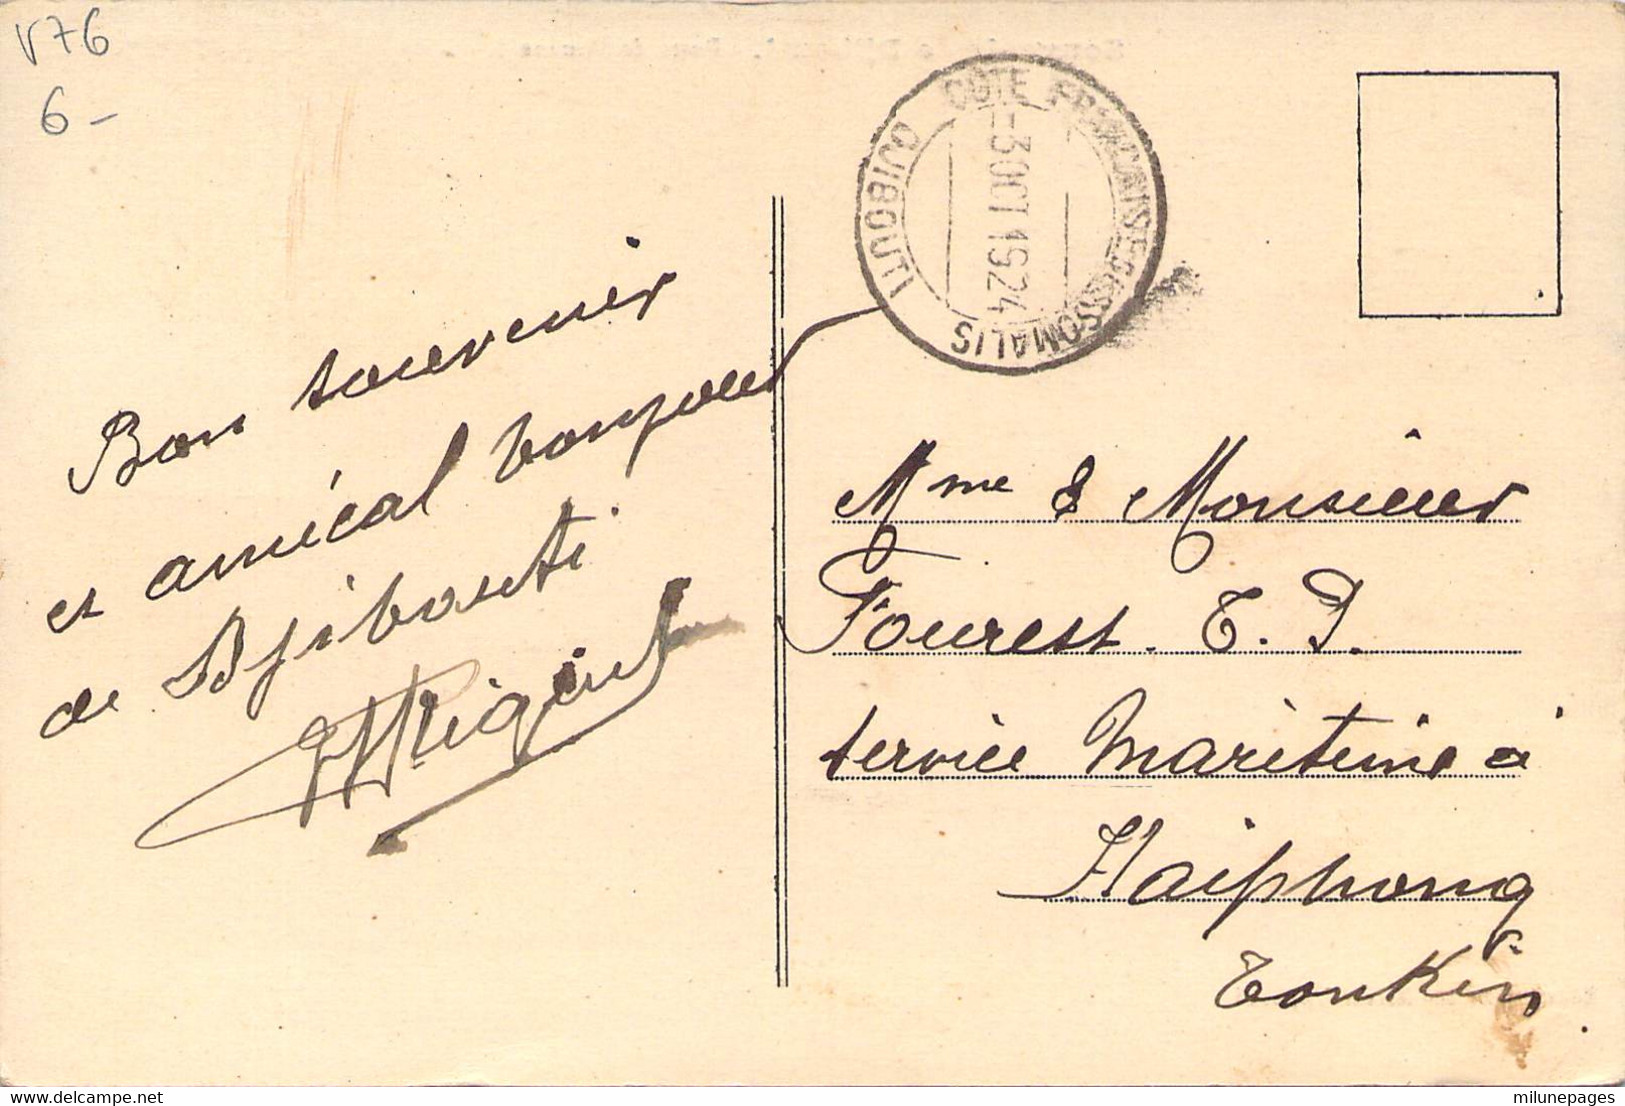 V76
6-
DJIBOUTI CÔTE FRANÇAISE DES SOMALIS
-3 OCT 1924
Bon souvenir
et amical bonjour
de Djibouti
Mme & Monsieur
Fourest. T. P.
Service Maritime à
Haiphong
Tonkin
milunepages.com